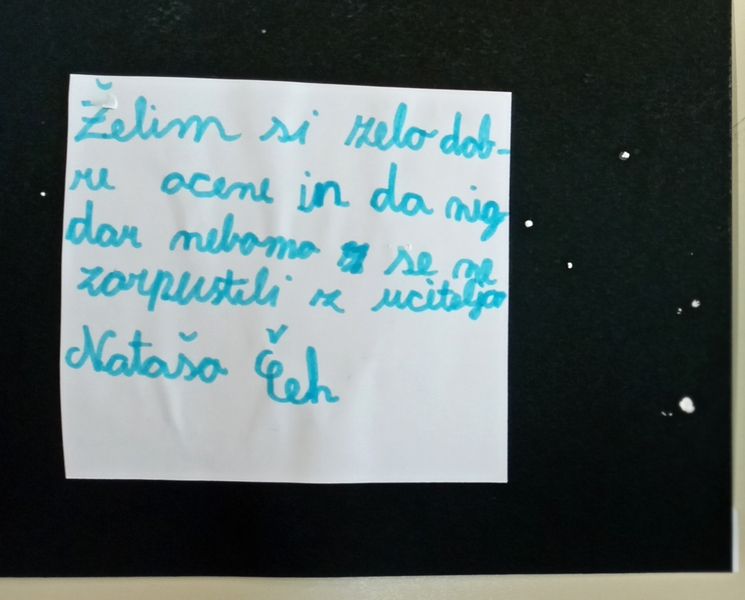 Želim si zelo dob-
re ocene in da nig
dar nebomo se ne
zarpustili z uciteljo
Nataša Čeh